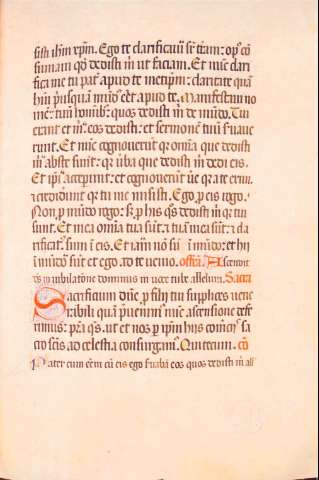 sisti ihm xpm. Ego te clarificaui sr tram: op' co
sumaui qd dedisti m ut faciam. Et nuc clari
fica me tu pat apud te metipm: claritate qua
hui pusqua mud' eet apud te. Manifestaui no
me: tuu homib: quos dedisti m de mudo. Tui
erant et m eos dedisti: et sermone tuu suaue
runt. Et nuc cognouerut qr omia que dedisti
m abs te sunt: qr uba que dedisti m dedi eis.
Et ipi acceperunt: et cognouerut ue qr a te exiui.
et crediderut qr tu me misisti. Ego p eis rogo.
Non p mudo rogo: s p his qs dedisti m qr tui
sunt. Et mea omia tua sut: et tua mea sut: et cla
rificat sum i eis. Et iam no su i mudo: et hi
i mudo sut et ego ad te uenio. offm. Ascendit
deus in iubilatone dominus in uoce tube alleluia. Sacra
Sacrificium dne p filij tui supplices uene
rabili qua puenim' nuc ascensione defe
rimus: pra qs. ut et nos p ipm huis comercij sa
cro scis ad celestia consurgam. Qui tecum. co
Pater cum eem cu eis ego seruaba eos quos dedisti m all'